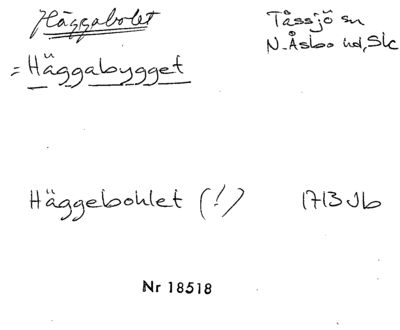 Häggabolet
Tåssjö sn
N. Åsbo hd, Sk
= Häggabygget
Häggebohlet (!) 1713 Jb
Nr 18518